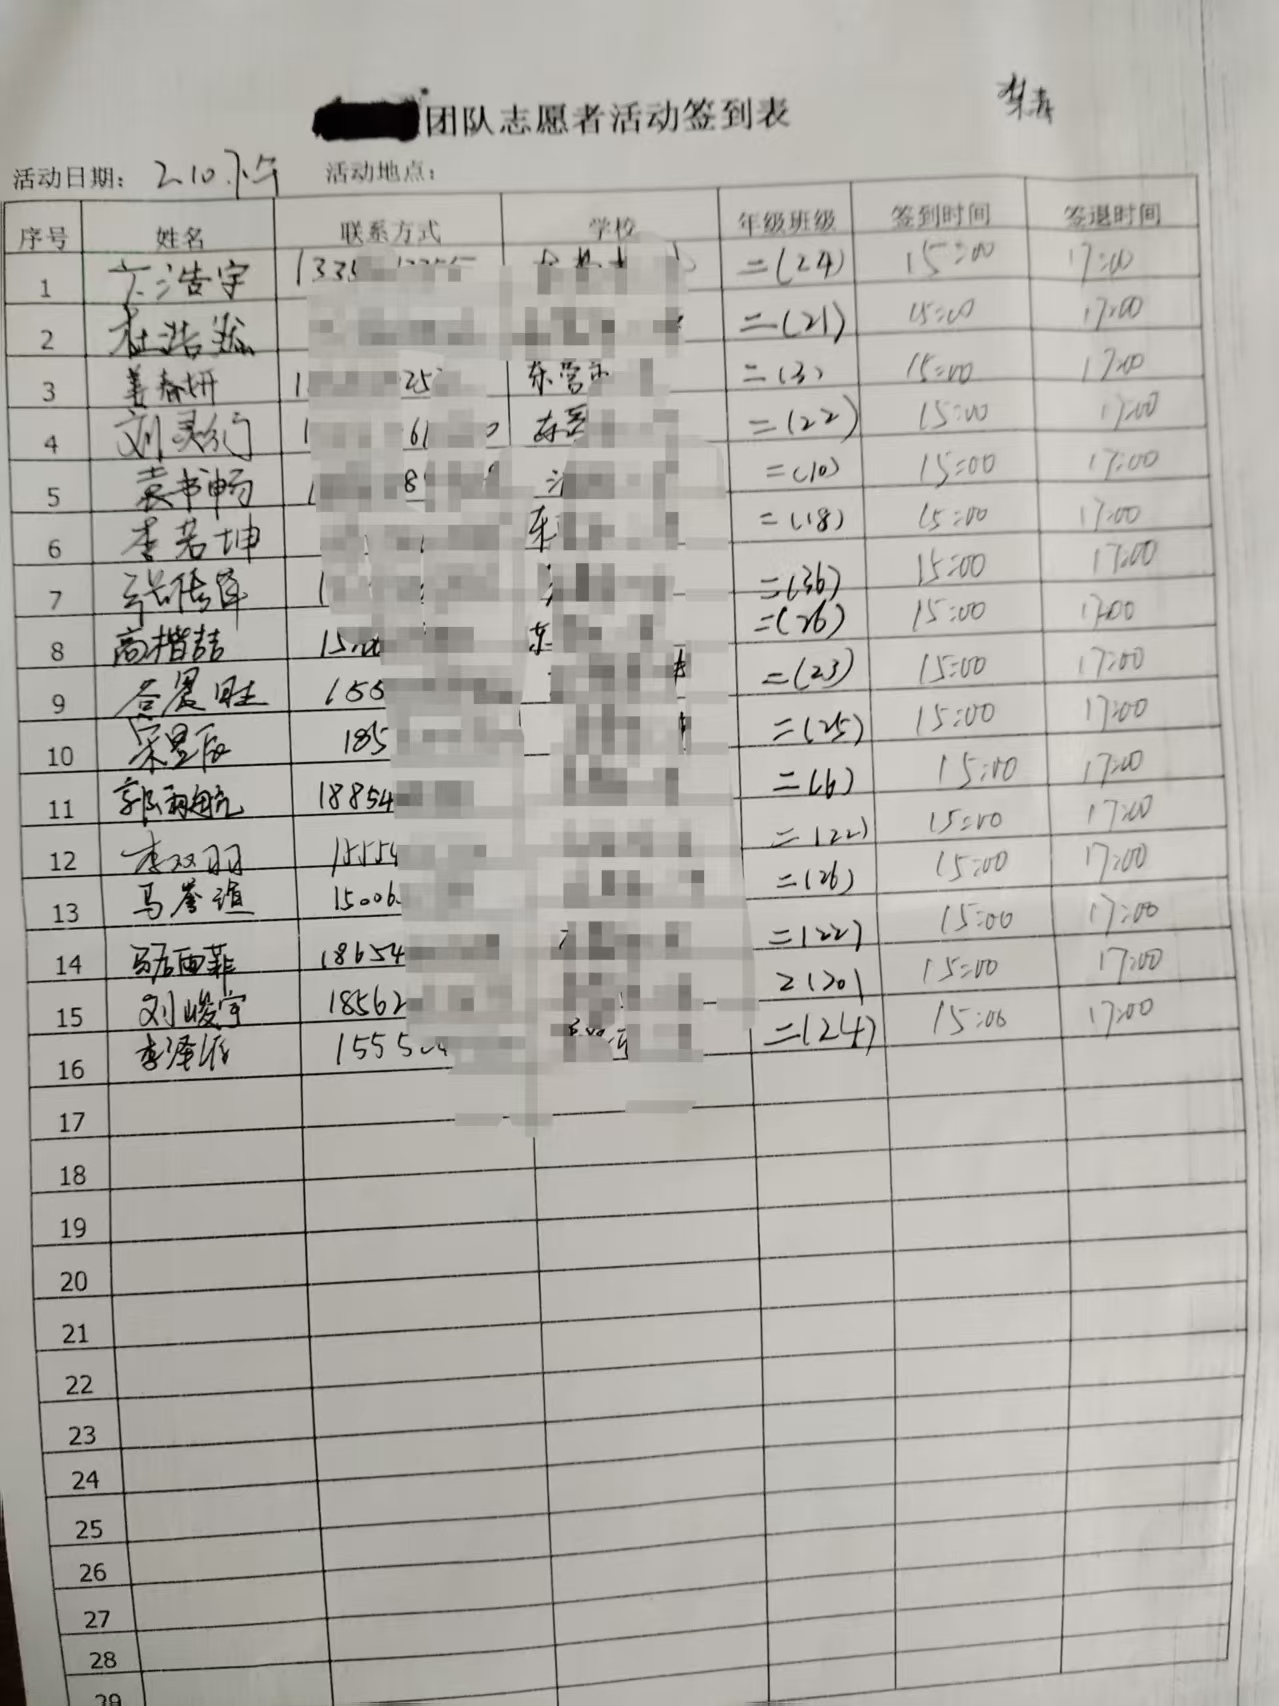 团队志愿者活动签到表
活动日期： 2.10.下午 活动地点：
序号 姓名 联系方式 学校 年级班级 签到时间 签退时间
1 浩宇 133 二(24) 15:00 17:00
2 杜浩 二(21) 15:00 17:00
3 姜春妍 1 25 东营市 二(3) 15:00 17:00
4 刘灵 1 61 二(22) 15:00 17:00
5 袁书畅 8 二(10) 15:00 17:00
6 李若坤 东 二(18) 15:00 17:00
7 张 二(36) 15:00 17:00
8 高楷喆 东 二(26) 15:00 17:00
9 谷晨旺 155 二(23) 15:00 17:00
10 宋昱辰 185 二(25) 15:00 17:00
11 郭雨航 18854 二(6) 15:00 17:00
12 李双羽 15554 二(22) 15:00 17:00
13 马誉谊 15006 二(26) 15:00 17:00
14 雨菲 18654 二(22) 15:00 17:00
15 刘峻宇 18562 2(20) 15:00 17:00
16 李泽 155 二(24) 15:00 17:00
17
18
19
20
21
22
23
24
25
26
27
28